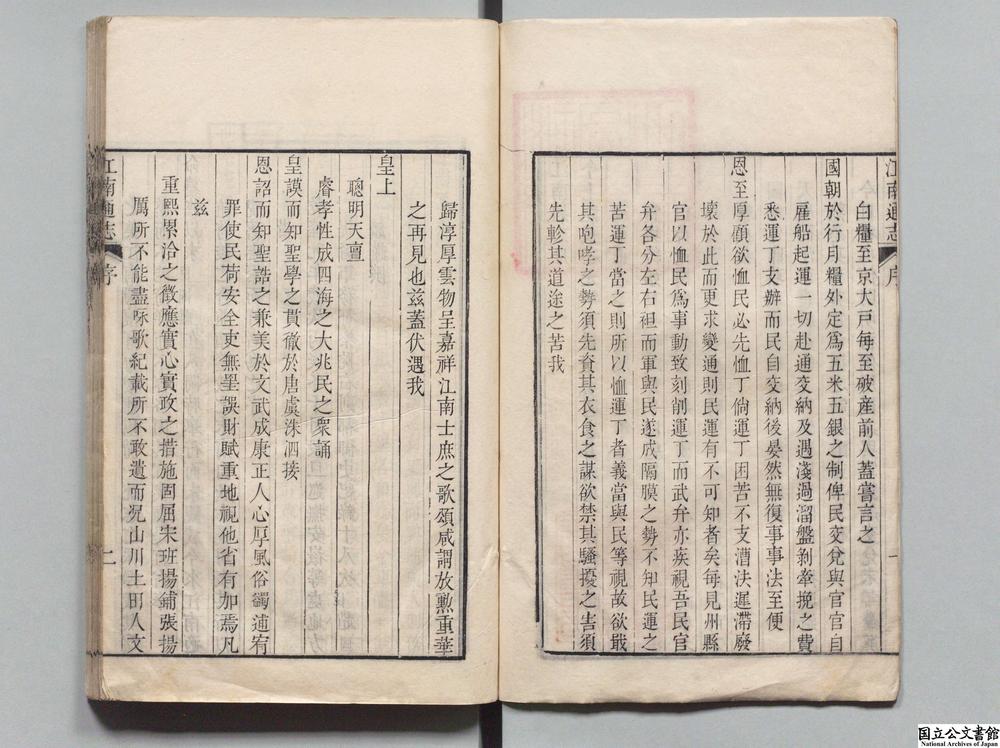 江南通志 序 一
白糧至京大戸每至破産前人蓋嘗言之
國朝於行月糧外定為五米五銀之制俾民交兌與官官自
雇船起運一切赴通交納及遇淺過溜盤剝牽挽之費
悉運丁支辦而民自交納後晏然無復事事法至便
恩至厚顧欲恤民必先恤丁倘運丁困苦不支漕決遲滯廢
壞於此而更求變通則民運有不可知者矣每見州縣
官以恤民為事動致刻削運丁而武弁亦疾視吾民官
弁各分左右袒而軍與民遂成隔膜之勢不知民運之
苦運丁當之則所以恤運丁者義當與民等視故欲戢
其咆哮之勢須先資其衣食之謀欲禁其騷擾之害須
先軫其道途之苦我
歸淳厚雲物呈嘉祥江南士庶之歌頌咸謂放勲重華
之再見也兹蓋伏遇我
皇上
聰明天亶
睿孝性成四海之大兆民之衆誦
皇謨而知聖學之貫徹於唐虞洙泗接
恩詔而知聖誥之兼美於文武成康正人心厚風俗蠲逋宥
罪使民荷安全吏無罣誤財賦重地視他省有加焉凡
兹
重熙累洽之徵應實心實政之措施固屈宋班揚鋪張揚
厲所不能盡咏歌紀載所不敢遺而况山川土田人文
江南通志 序 二
国立公文書館
National Archives of Japan